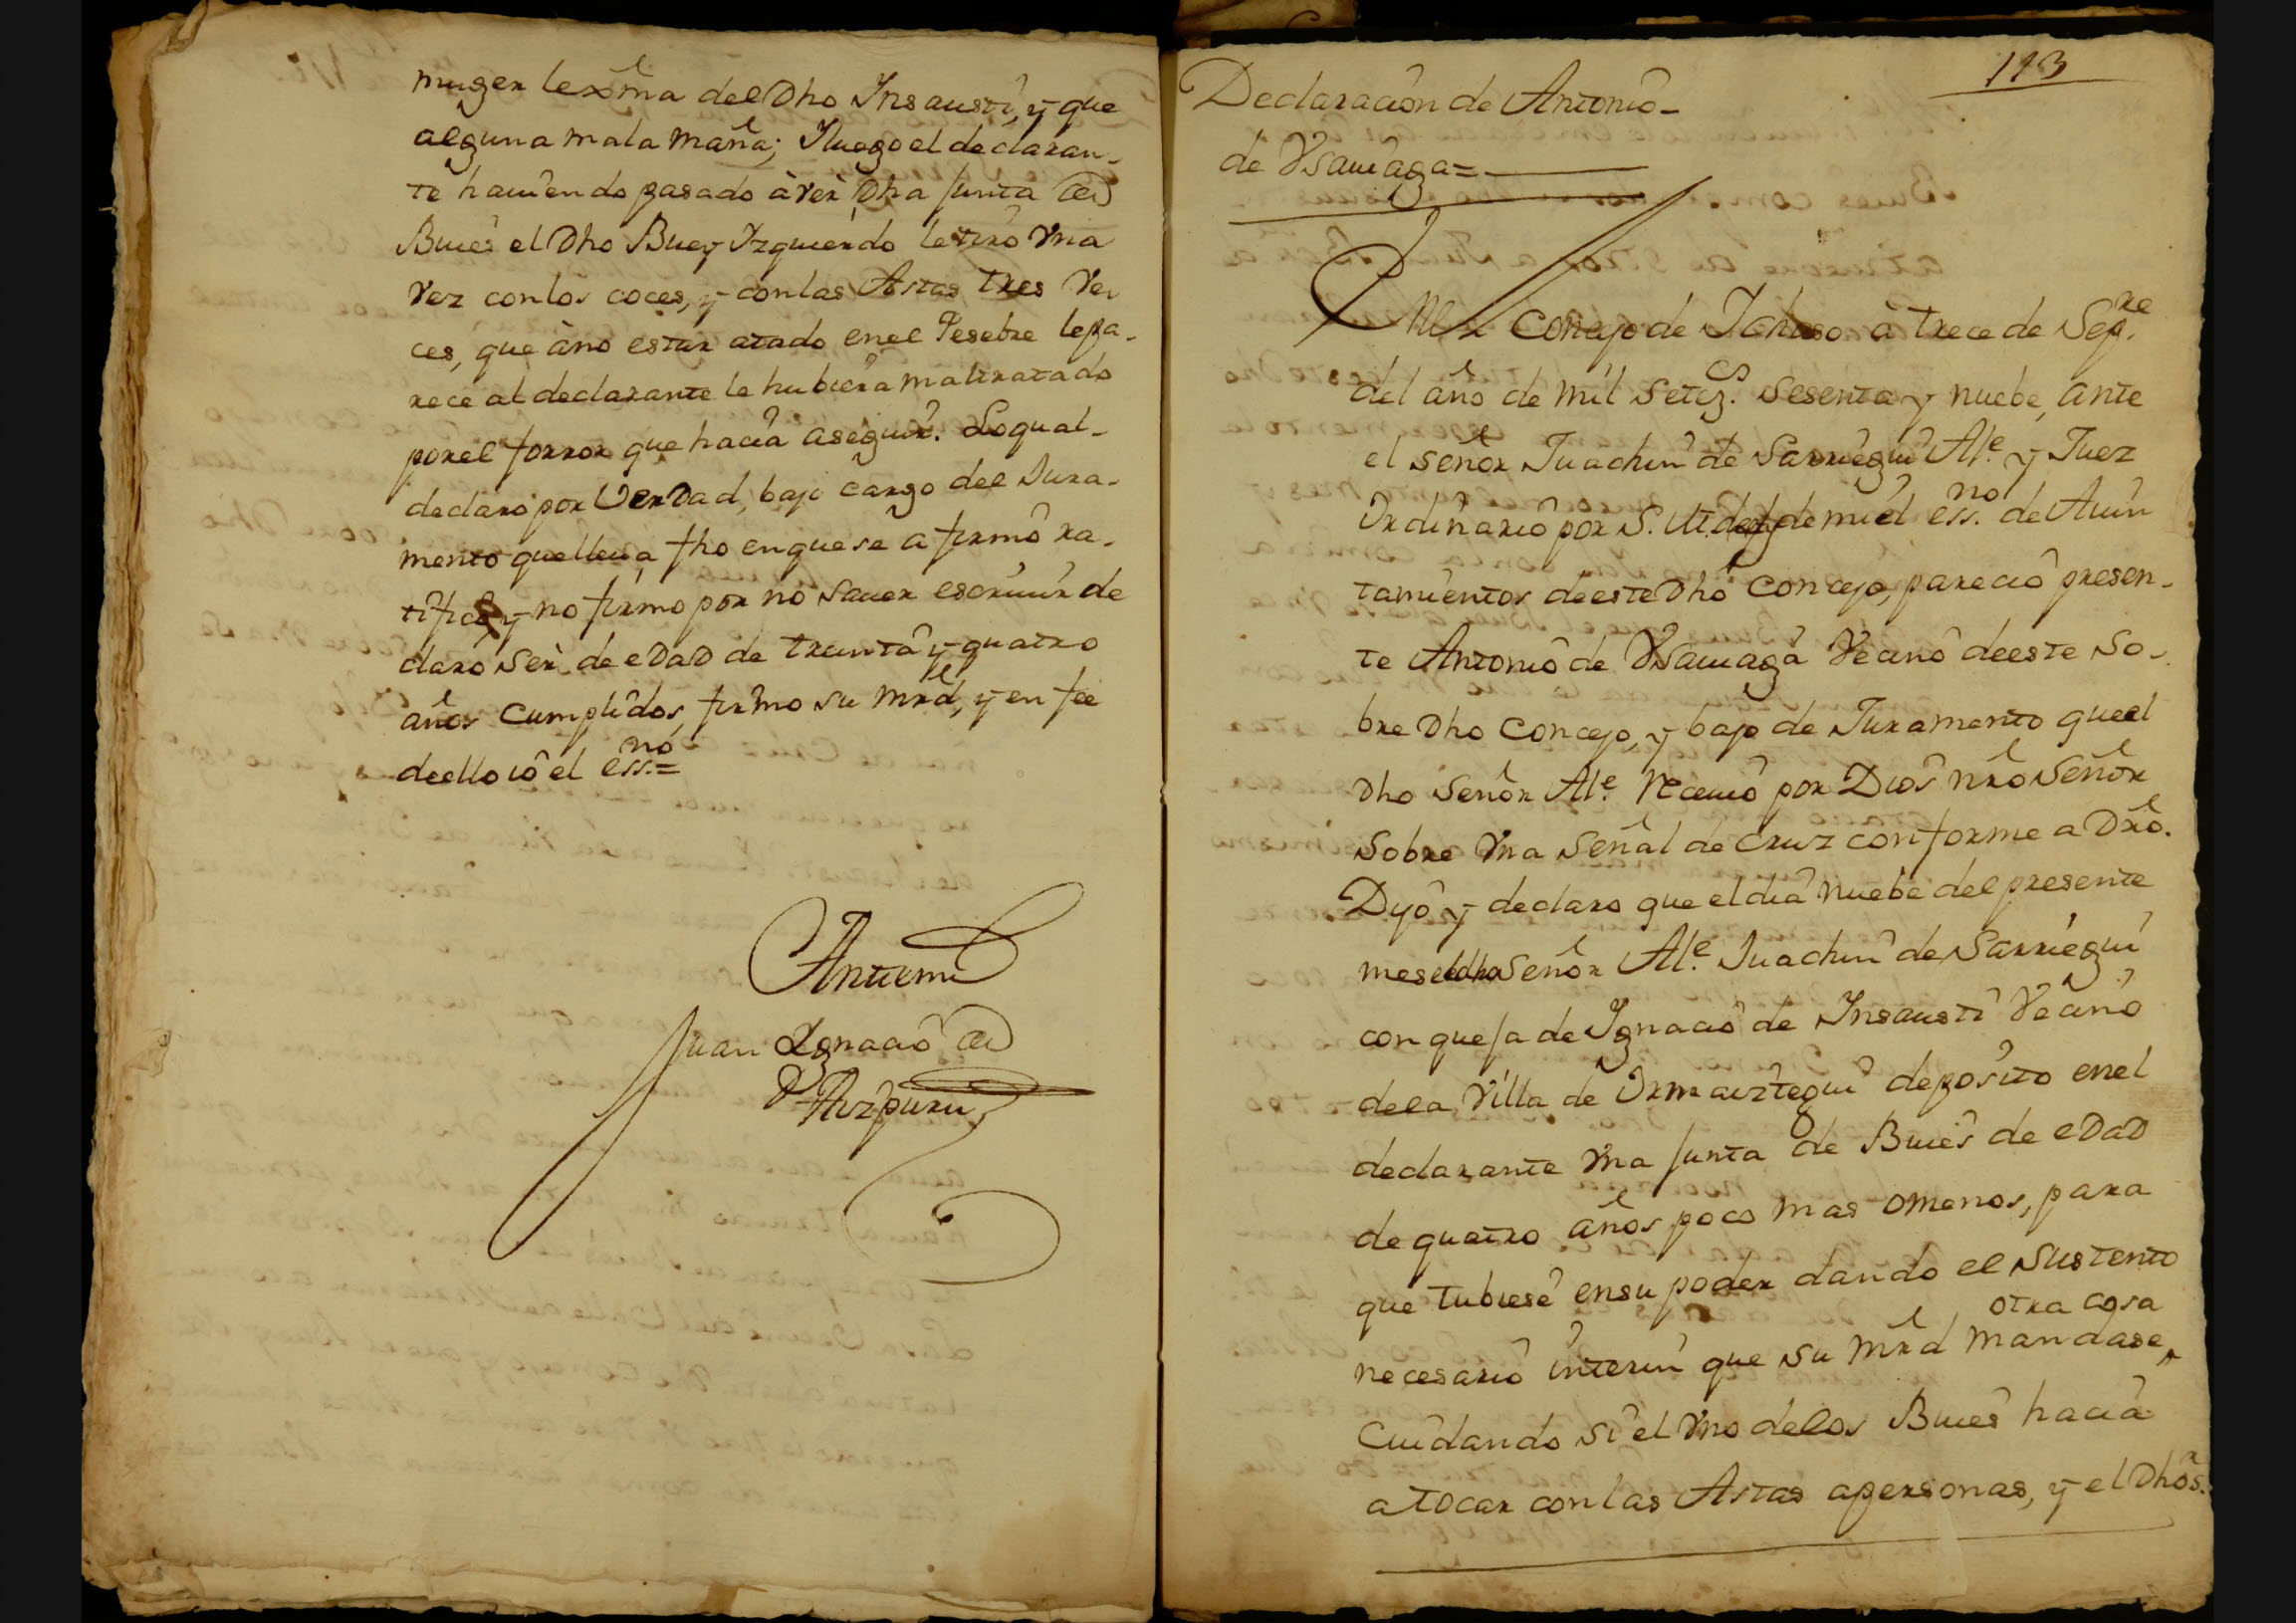 muger lexma del Dho Ynsausti, y que
alguna mala maña; Yluego el declaran-
te haviendo pasado à ver Dha Junta de
Bueis el Dho Buey Yzquierdo le tiró Vna
Vez con los coces, y con las Astas tres Ve-
ces, que àno estar atado en el Pesebre lepa-
rece al declarante le hubiera maltratado
por el forror que hacia aseguir. Loqual-
declaro por Verdad, bajo cargo del Jura-
mento que lleva fho en que se afirmò ra-
tificò, y no firmo por no saver escrivir de
claro Ser de edad de treinta y quatro
años cumplidos, firmo su mrd, y en fee
de ello iô el essno=
Antemi
Juan Ygnacio de
Aizpuru
113
Declaracion de Antonio-
de Vsaviaga=
En el Concejo de Ychaso à trece de Sepre
del año de mil Setezs. Sesenta y nuebe, ante
el señor Juachin de Sarriegui Ale. y Juez
Ordinario por S. M. de mi el essno de Aiun
tamientos de este Dho Concejo, pareciò presen-
te Antonio de Vsaviaga Vecino de este So-
bre Dho Concejo, y bajo de Juramento que el
Dho Señor Ale. Recivio por Dios nro Señor
Sobre Vna Señal de Cruz conforme a Dro.
Dijo y declaro que el dia nuebe del presente
mes el dho Señor Ale. Juachin de Sarriegui
con queja de Ygnacio de Ynsausti Vecino
de la Villa de Ormaiztegui deposito en el
declarante Vna Junta de Bueis de edad
de quatro años poco mas omenos, para
que tubiese en su poder dando el Sustento
necesario interin que su Mrd mandase otra cosa
Cuidando si el Vno de los Bueis hacia
a tocar con las Astas a personas, y el Dho Sr.